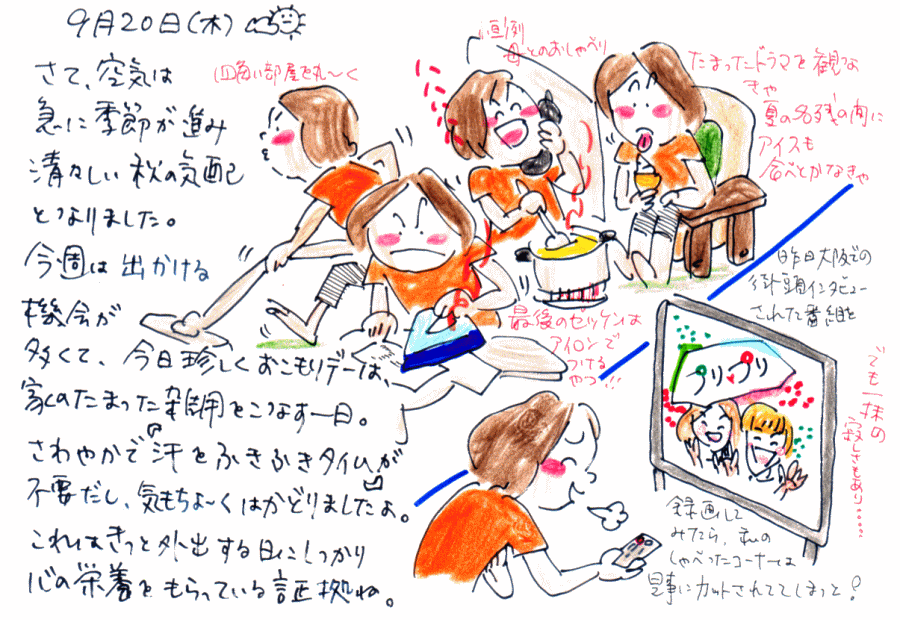 9月20日(木)
さて、空気は
急に季節が進み
清々しい秋の気配
となりました。
今週は出かける
機会が
多くて、今日珍しくおこもりデーは、
家のたまった雑用をこなす一日。
さわやかで「汗をふきふきタイム」が
不要だし、気もちよ〜くはかどりましたよ。
これはきっと外出する日にしっかり
心の栄養をもらっている証拠ね。
四角い部屋を丸〜く
恒例
母とのおしゃべり
たまったドラマを観な
きゃ
夏の名残の内に
アイスも
食べとかなきゃ
最後のゼッケンは
アイロンで
つけるやつ!!
昨日大阪での
街頭インタビュー
された番組を
プリ プリ
録画して
みたら、私の
しゃべったコーナーは
見事にカットされててしまっと!
でも一抹の
寂しさもあり……